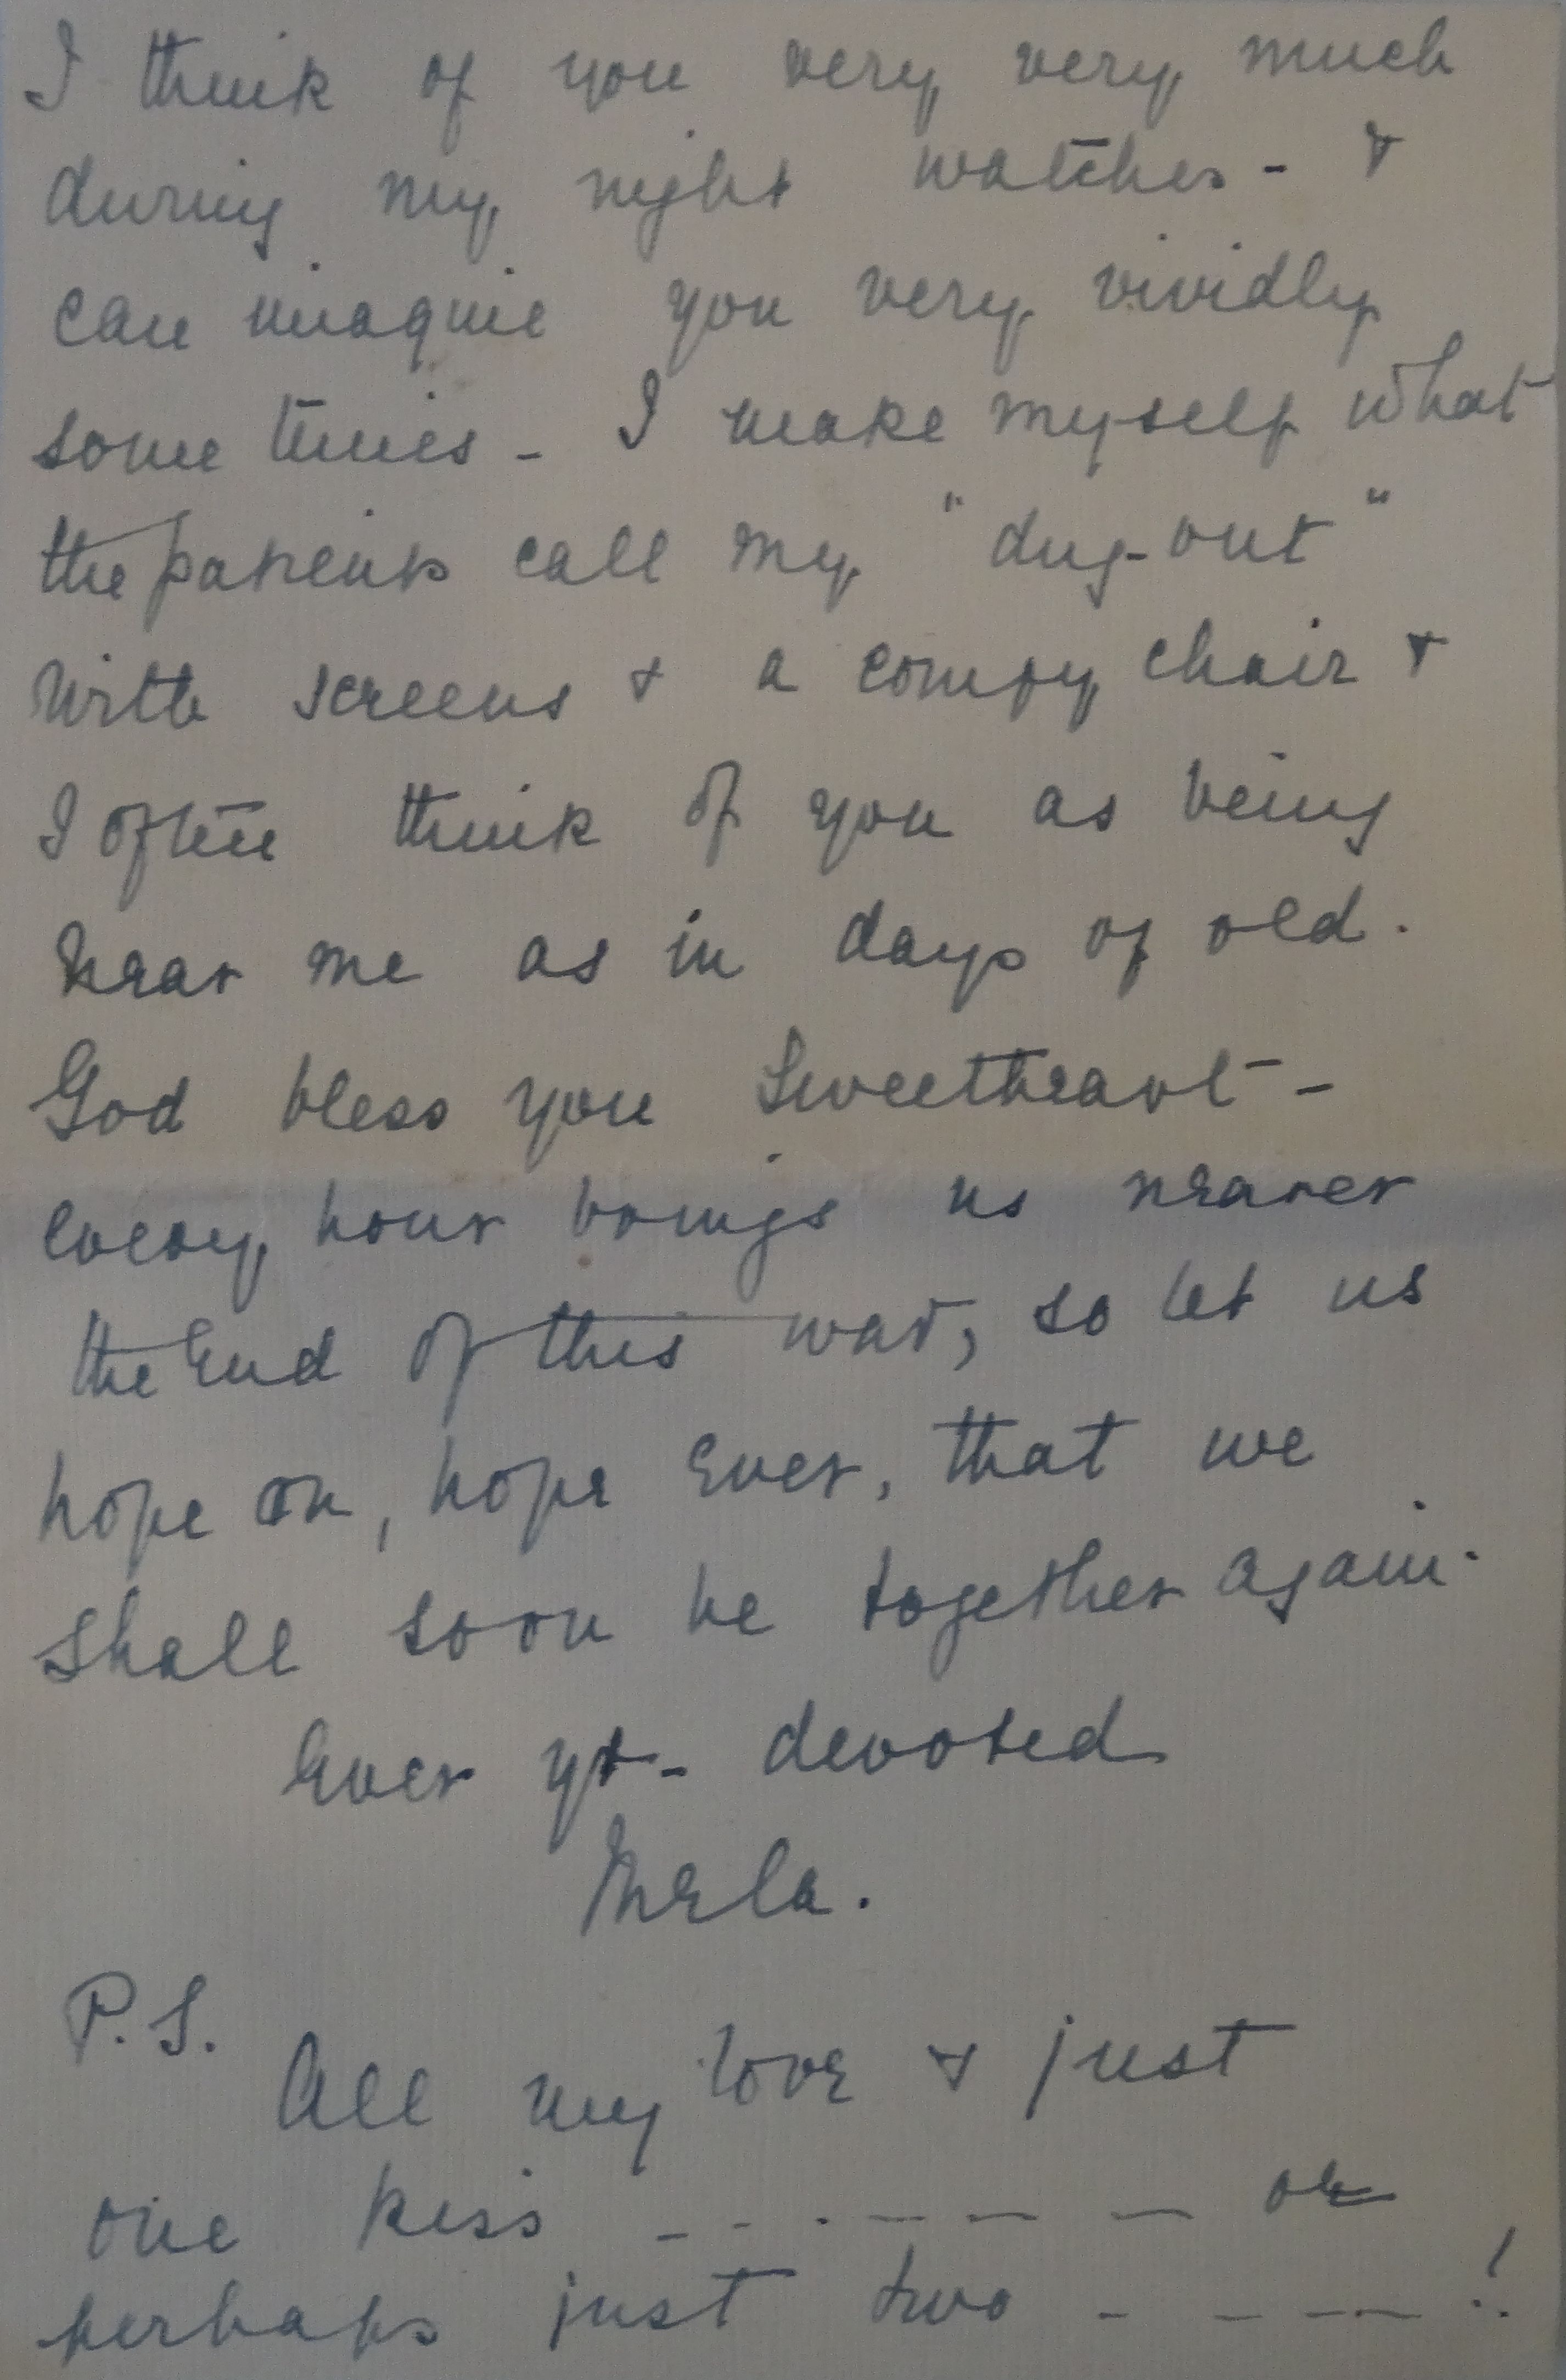 I think of you very very much
during my night watches - &
can imagine you very vividly
some times - I make myself what
the patients call my "dug-out"
with screens & a comfy chair &
I often think of you as being
near me as in days of old.
God bless you Sweetheart -
every hour brings us nearer
the End of this war, so let us
hope on, hope Ever, that we
shall soon be together again.
Ever yr - devoted
Mela.
P.S.
All my love & just
one kiss - - - - - - or
perhaps just two - - - - !